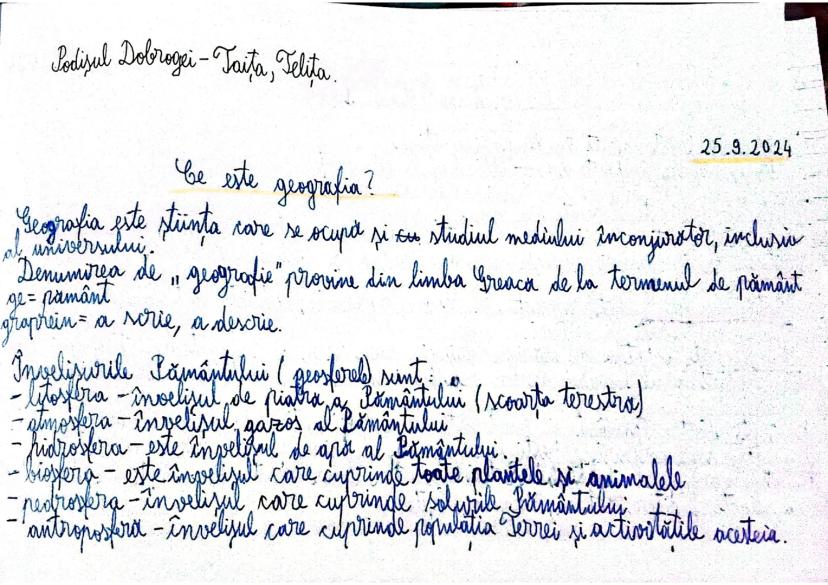 Podișul Dobrogei - Taița, Telița.
25.9.2024
Ce este geografia?
Geografia este știința care se ocupă și cu studiul mediului înconjurător, inclusiv
al universului.
Denumirea de „geografie" provine din limba Greacă de la termenul de pământ
ge = pământ
graphein = a scrie, a descrie.
Învelișurile Pământului (geosferele) sunt:
- litosfera - învelișul de piatră a Pământului (scoarța terestră)
- atmosfera - învelișul gazos al Pământului
- hidrosfera - este învelișul de apă al Pământului.
- biosfera - este învelișul care cuprinde toate plantele și animalele
- pedosfera - învelișul care cuprinde solurile Pământului
- antroposfera - învelișul care cuprinde populația Terrei și activitățile acesteia.